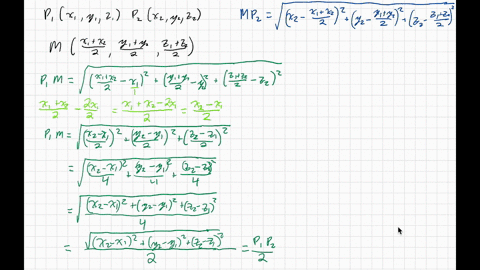 P₁ (x₁, y₁, z₁) P₂ (x₂, y₂, z₂)
M ( (x₁+x₂)/2 , (y₁+y₂)/2 , (z₁+z₂)/2 )
P₁M = √( ((x₁+x₂)/2 - x₁/1)² + ((y₁+y₂)/2 - y₁)² + ((z₁+z₂)/2 - z₂)² )
(x₁+x₂)/2 - 2x₁/2 = (x₁+x₂-2x₁)/2 = (x₂-x₁)/2
P₁M = √( ((x₂-x₁)/2)² + ((y₂-y₁)/2)² + ((z₂-z₁)/2)² )
= √( (x₂-x₁)²/4 + (y₂-y₁)²/4 + (z₂-z₁)²/4 )
= √( ((x₂-x₁)² + (y₂-y₁)² + (z₂-z₁)²)/4 )
= √((x₂-x₁)² + (y₂-y₁)² + (z₂-z₁)²)/2 = P₁P₂/2
MP₂ = √( (x₂ - (x₁+x₂)/2)² + (y₂ - (y₁+y₂)/2)² + (z₂ - (z₁+z₂)/2)² )